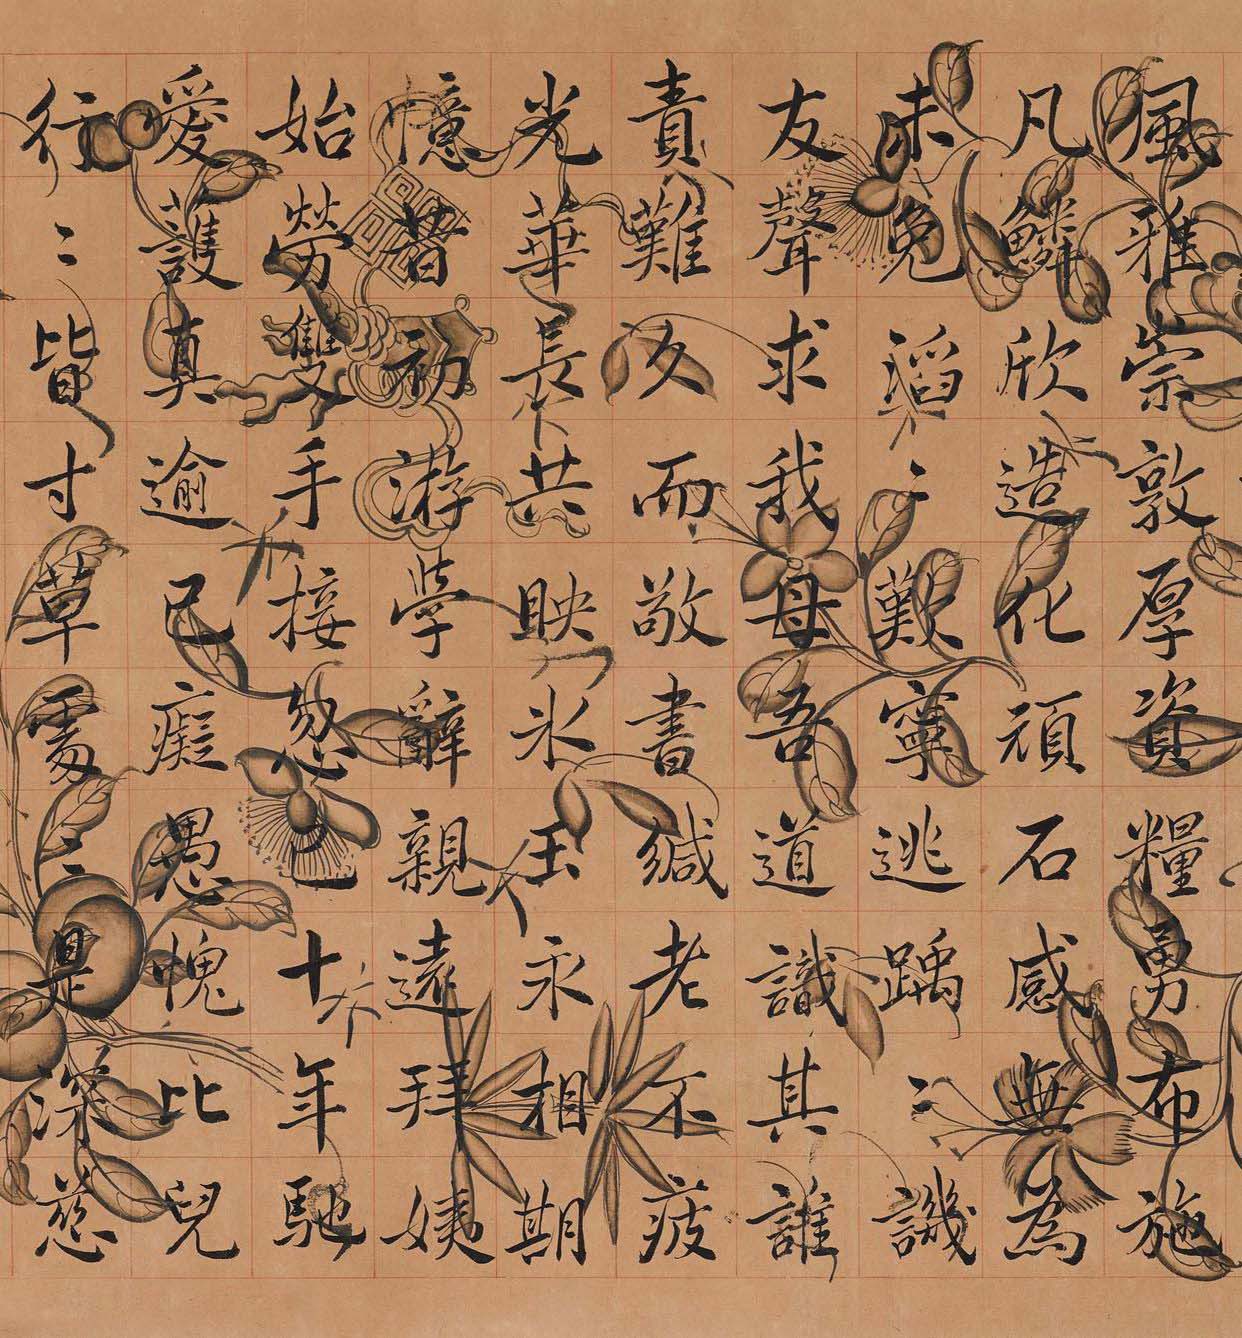 風雅崇敦厚資糧勇布施
凡鱗欣造化頑石感無為
未免滔〻歎寧逃踽〻譏
友聲求我母吾道識其誰
責難久而敬書緘老不疲
光華長共映氷玉永相期
憶昔初游學辭親遠拜姨
始勞雙手接忽已十年馳
愛護真逾己癡愚愧比兒
行〻皆寸草處〻是深慈